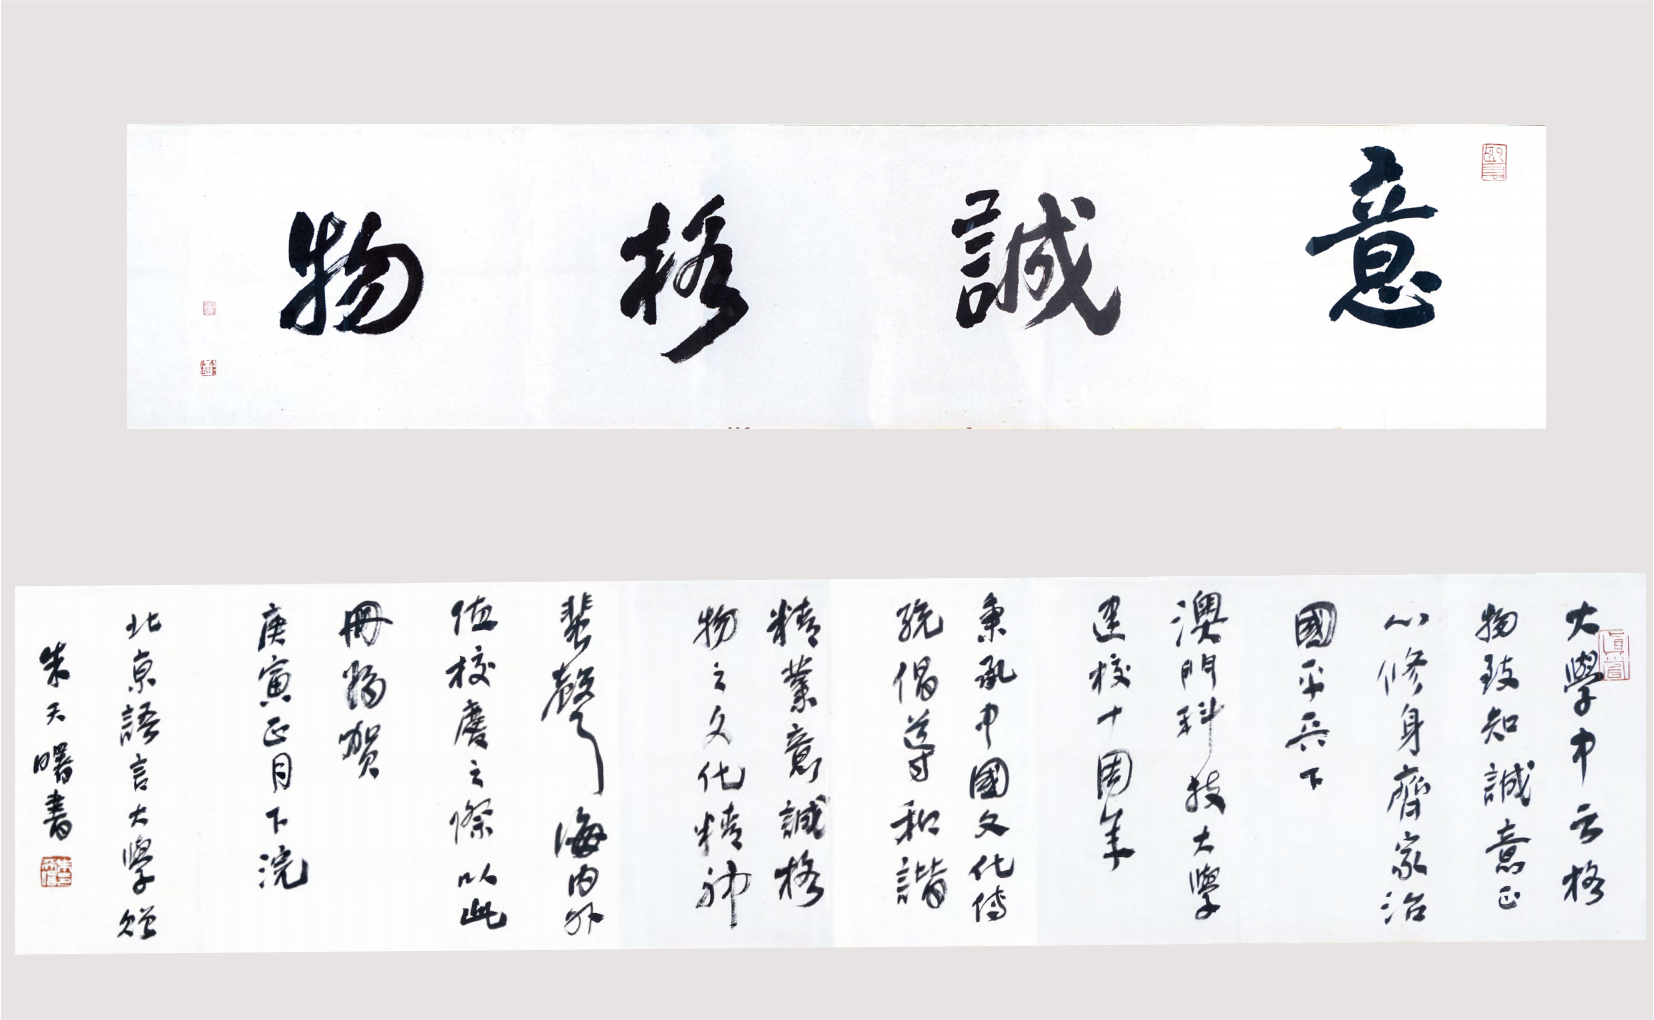 意誠格物
大學中云格
物致知誠意正
心修身齊家治
國平天下
澳門科技大學
建校十周年
秉承中國文化傳
統倡導和諧
精業意誠格
物之文化精神
蜚聲海内外
值校慶之際以此
冊為賀
庚寅正月下浣
北京語言大學贈
朱天曙書